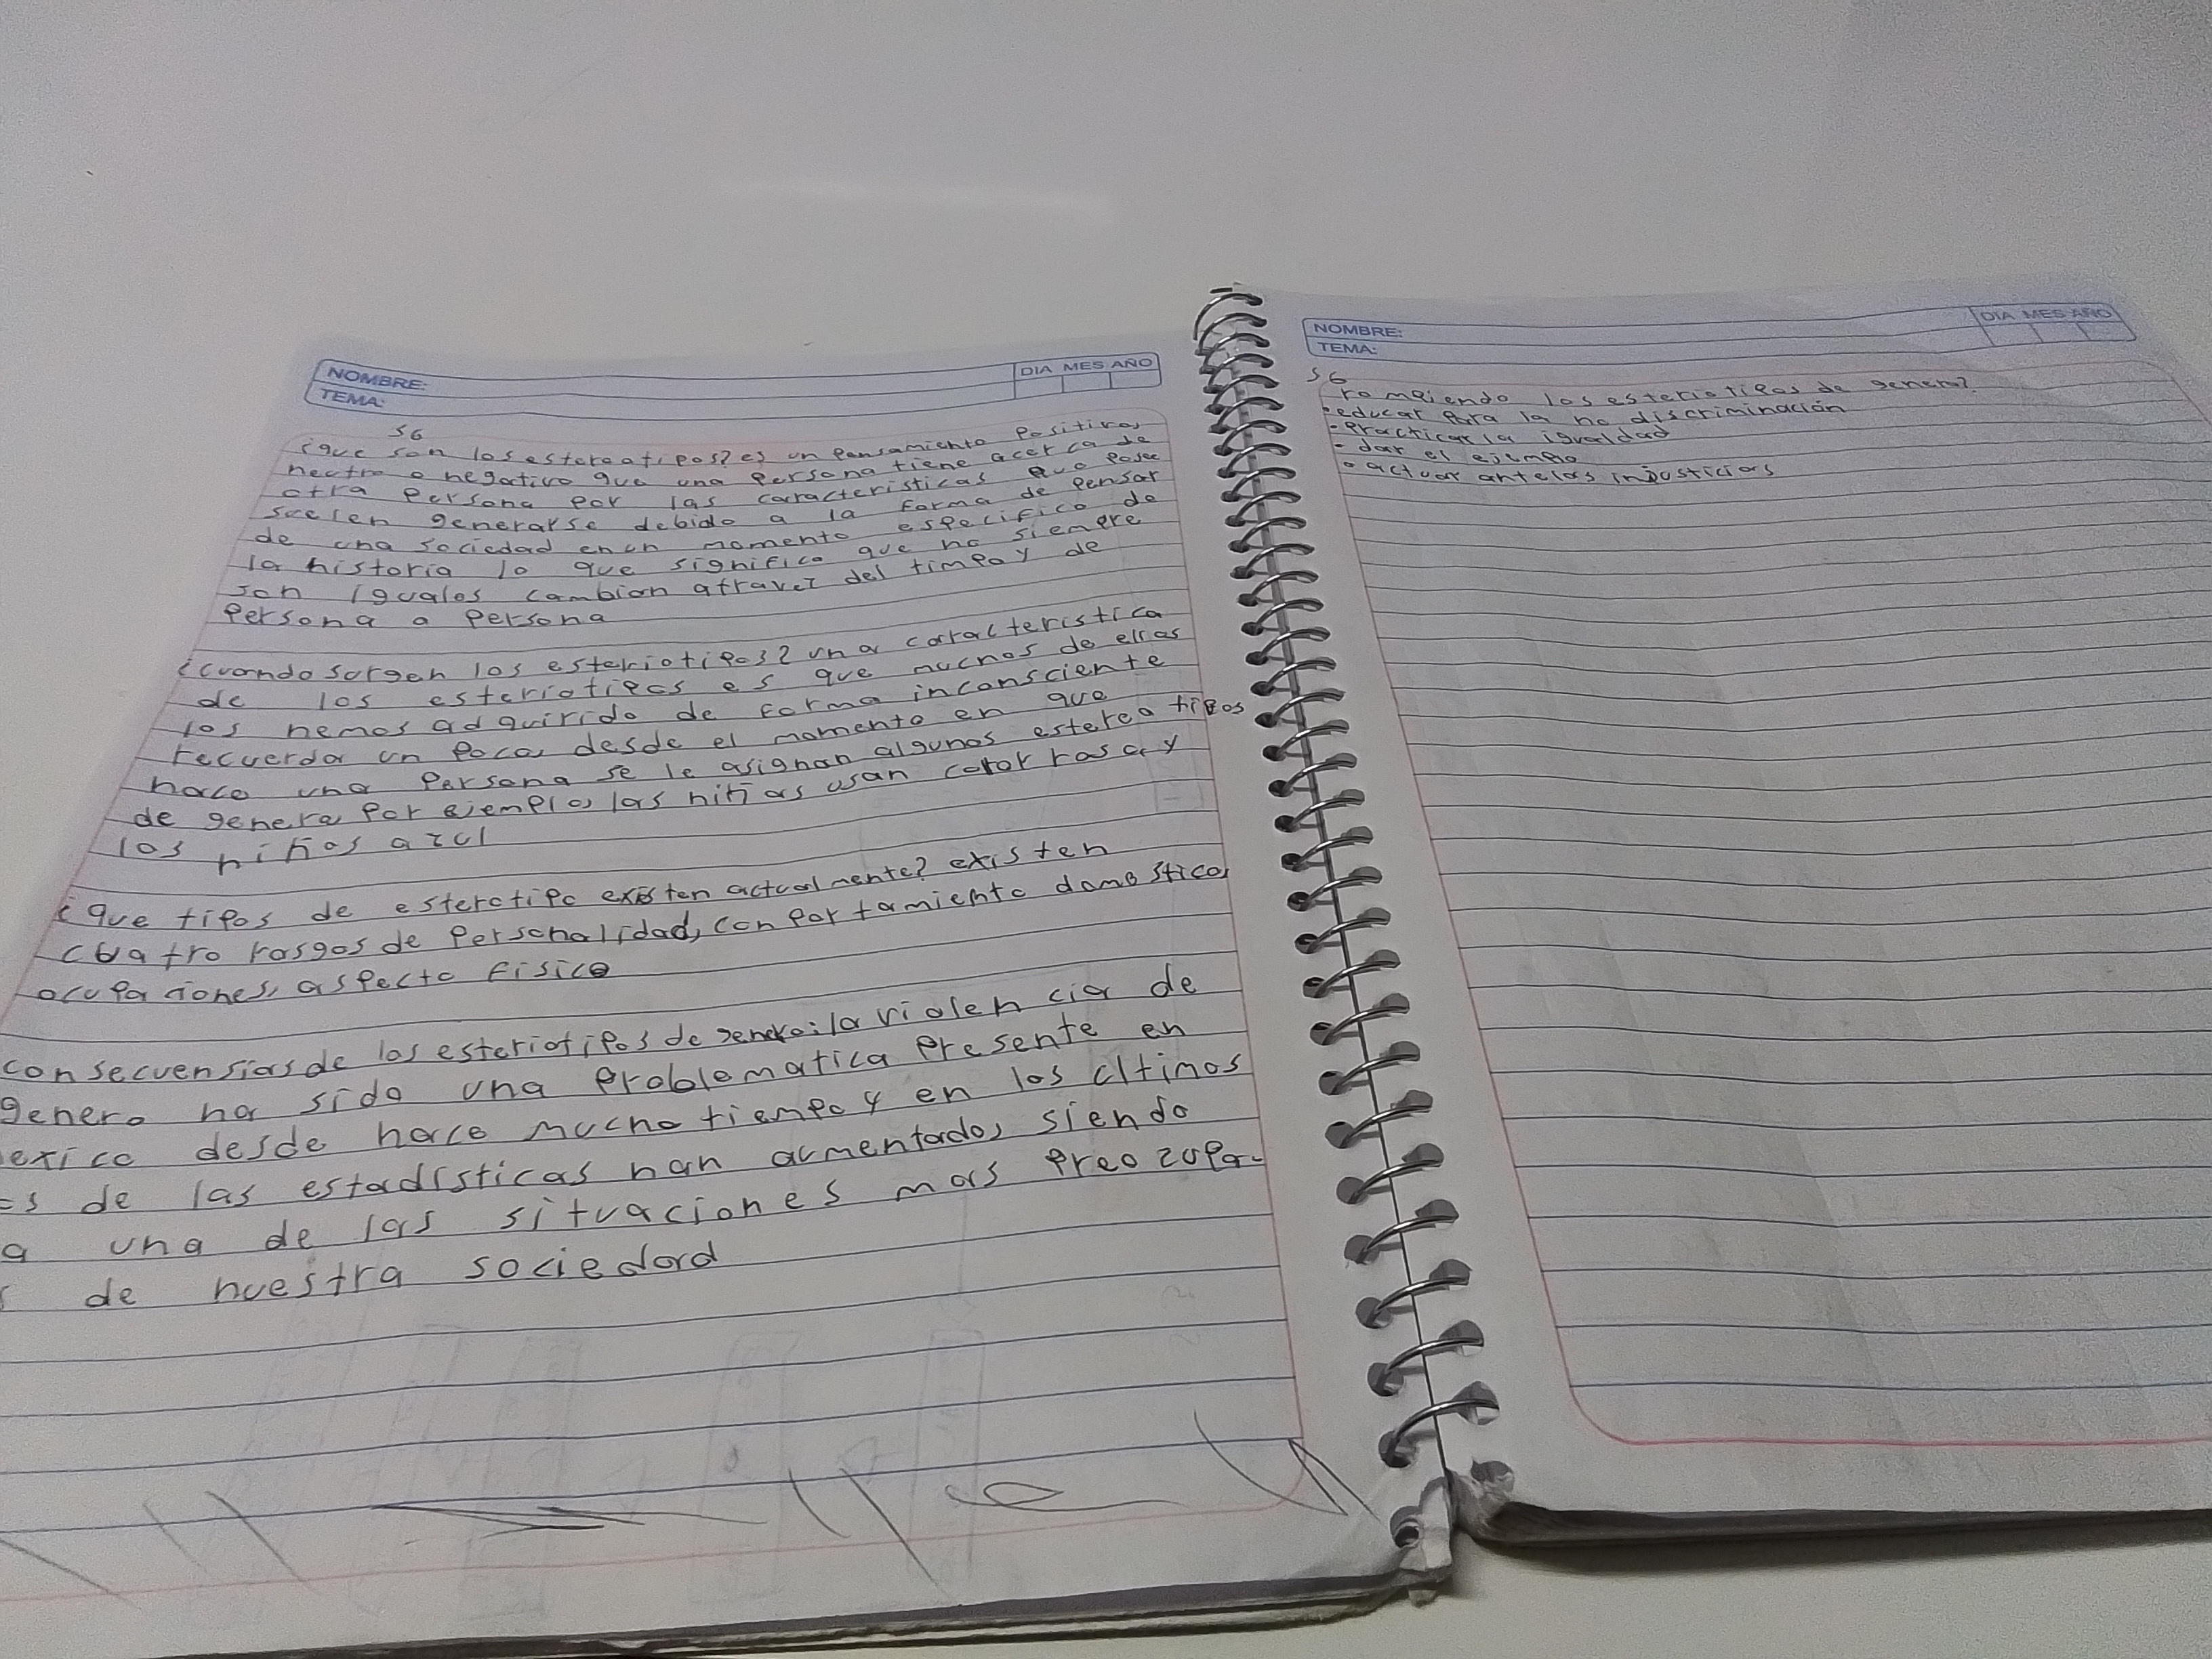 NOMBRE:
TEMA:
DIA MES AÑO
S6
¿que son los estereotipos? es un pensamiento positivo,
neutro o negativo que una persona tiene acerca de
otra persona por las caracteristicas que posee
suelen generarse debido a la forma de pensar
de una sociedad en un momento especifico de
la historia lo que significa que no siempre
son iguales cambian atravez del timpo y de
persona a persona
¿cuando surgen los esteriotipos? una caracteristica
de los esteriotipos es que muchos de ellos
los hemos adquirido de forma inconsciente
recuerda un poco, desde el momento en que
nace una persona se le asignan algunos estereotipos
de genero por ejemplo, las niñas usan color rosa, y
los niños azul
¿que tipos de esterotipo existen actualmente? existen
cuatro rasgos de personalidad, conportamiento domestico,
ocupaciones, aspecto fisico
consecuensias de los esteriotipos de genero: la violencia de
genero ha sido una problematica presente en
exico desde hace mucho tiempo y en los ultimos
es de las estadisticas han aumentado, siendo
a una de las situaciones mas preozupa-
s de nuestra sociedad
NOMBRE:
TEMA:
DIA MES AÑO
S6
rompiendo los esteriotipos de genero?
•educar para la no discriminación
•practicar la igualdad
• dar el ejemplo
• actuar ante las injusticias